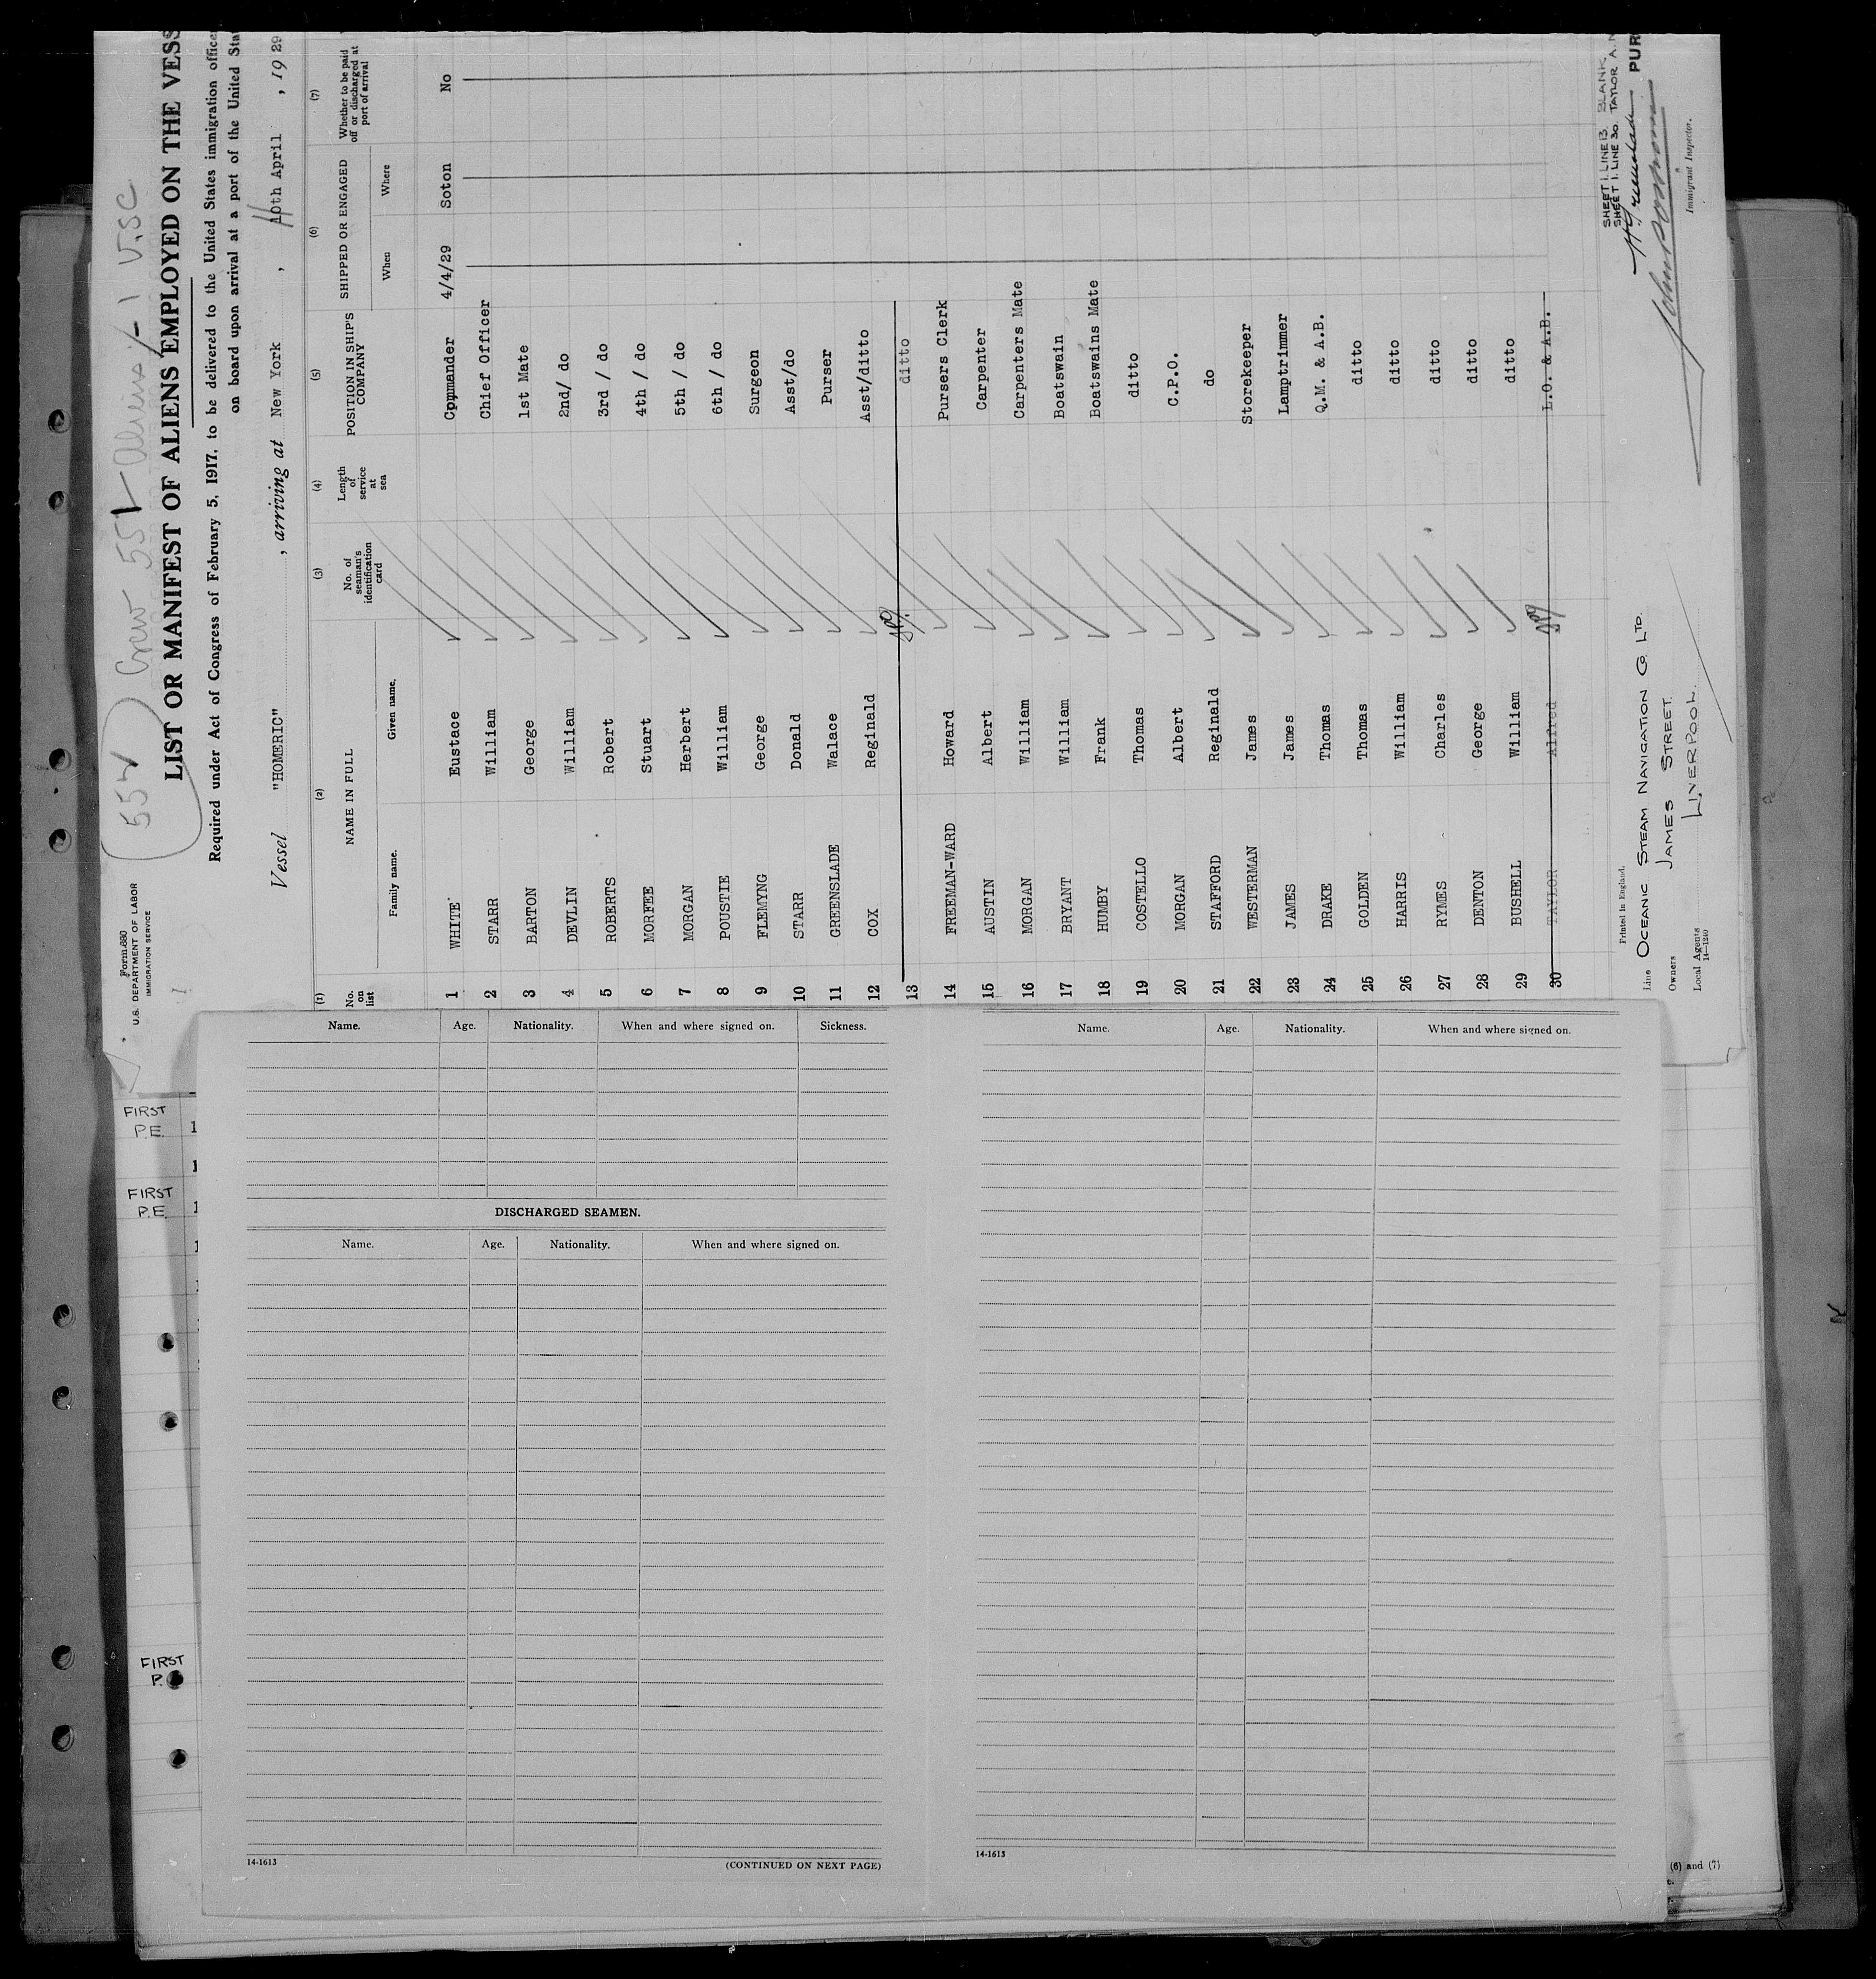 554 Crew 551 Aliens 1 U.S.C.
Form 680
U.S. DEPARTMENT OF LABOR
IMMIGRATION SERVICE
LIST OR MANIFEST OF ALIENS EMPLOYED ON THE VESS
Required under Act of Congress of February 5, 1917, to be delivered to the United States immigration office
on board upon arrival at a port of the United Sta
Vessel "HOMERIC", arriving at New York, 10th April, 1929
(1) (2) (3) (4) (5) (6) (7)
No. on list NAME IN FULL No. of seaman's identification card Length of service at sea POSITION IN SHIP'S COMPANY SHIPPED OR ENGAGED Whether to be paid off or discharged at port of arrival
Family name. Given name. When Where
1 WHITE Eustace Cpmmander 4/4/29 Soton No
2 STARR William Chief Officer
3 BARTON George 1st Mate
4 DEVLIN William 2nd/ do
5 ROBERTS Robert 3rd / do
6 MORFEE Stuart 4th / do
7 MORGAN Herbert 5th / do
8 POUSTIE William 6th / do
9 FLEMYNG George Surgeon
10 STARR Donald Asst/do
11 GREENSLADE Walace Purser
12 COX Reginald Asst/ditto
13 ditto
14 FREEMAN-WARD Howard Pursers Clerk
15 AUSTIN Albert Carpenter
16 MORGAN William Carpenters Mate
17 BRYANT William Boatswain
18 HUMBY Frank Boatswains Mate
19 COSTELLO Thomas ditto
20 MORGAN Albert C.P.O.
21 STAFFORD Reginald do
22 WESTERMAN James Storekeeper
23 JAMES James Lamptrimmer
24 DRAKE Thomas Q.M. & A.B.
25 GOLDEN Thomas ditto
26 HARRIS William ditto
27 RYMES Charles ditto
28 DENTON George ditto
29 BUSHELL William ditto
30 TAYLOR Alfred L.O. & A.B.
SHEET 1. LINE 13. BLANK.
SHEET 1. LINE 30. TAYLOR A.
PUR
Immigrant Inspector.
Printed in England.
Line OCEANIC STEAM NAVIGATION Co. LTD.
Owners JAMES STREET.
Local Agents LIVERPOOL.
14—1240
FIRST
P.E.
1
1
FIRST
P.E.
1
1
FIRST
P.
Name. Age. Nationality. When and where signed on. Sickness.
DISCHARGED SEAMEN.
Name. Age. Nationality. When and where signed on.
14-1613 (CONTINUED ON NEXT PAGE)
Name. Age. Nationality. When and where signed on.
14-1613
(6) and (7)